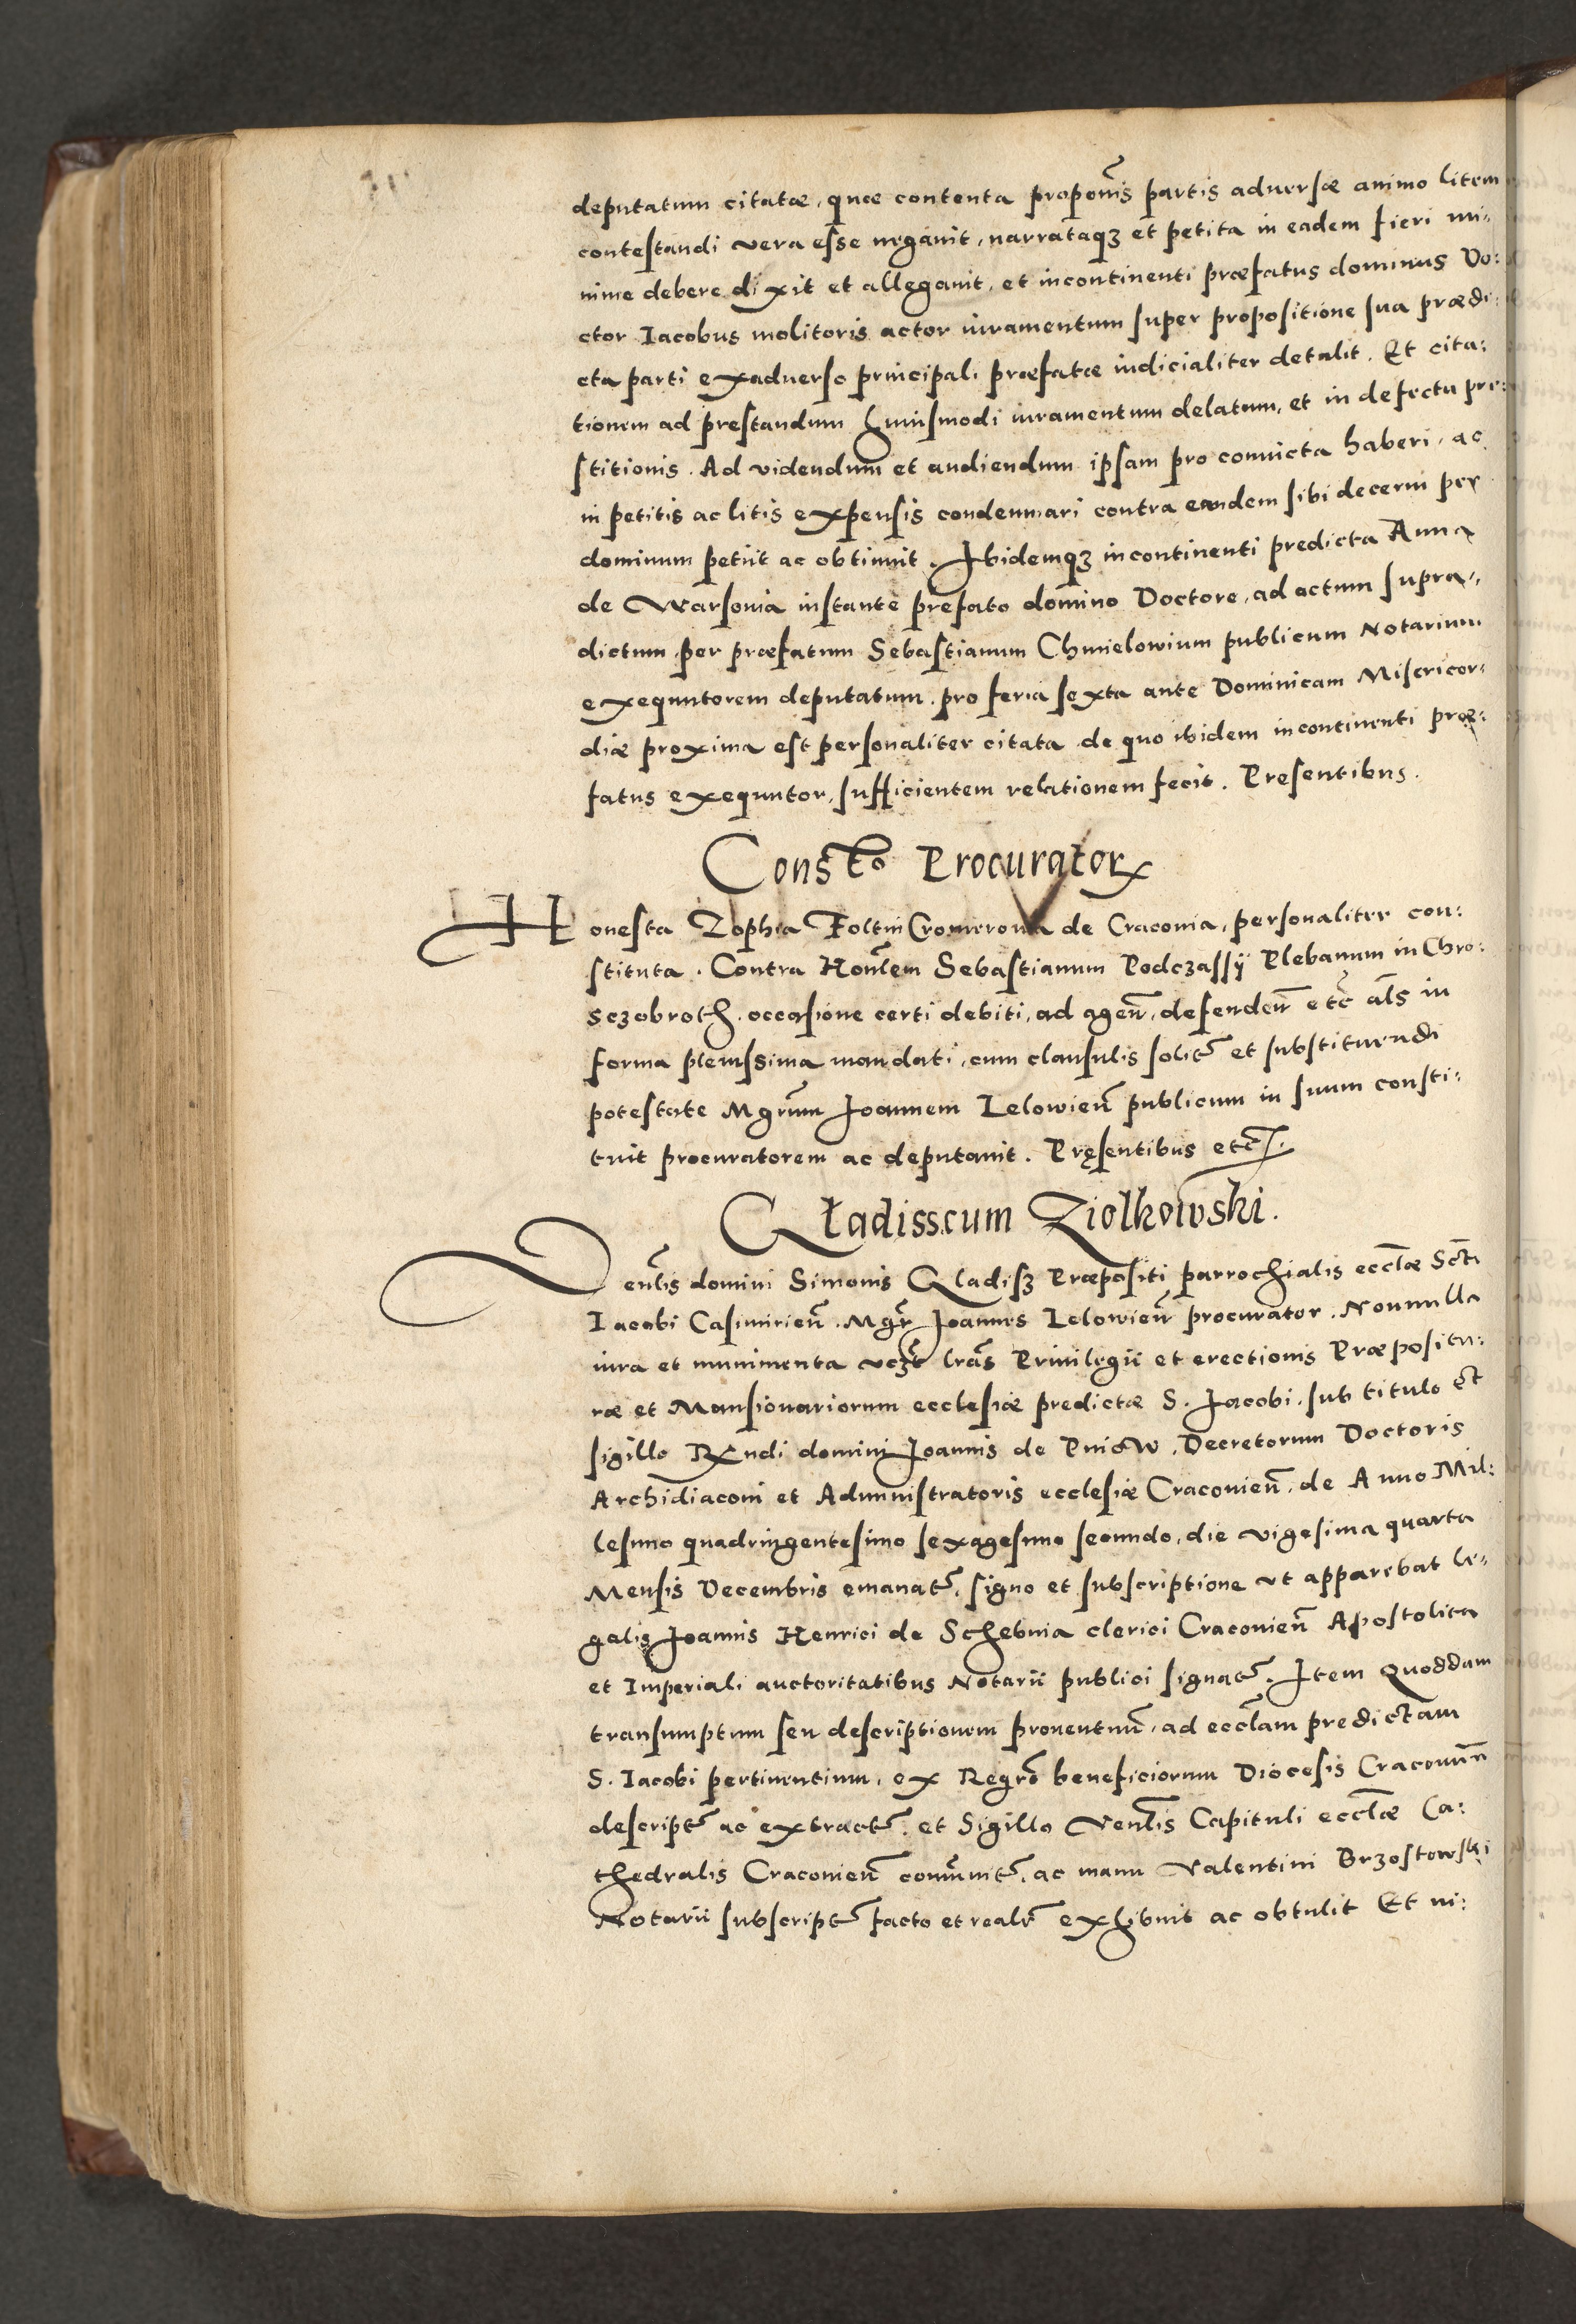 deputatum citatæ, quæ contenta propōnis partis aduersæ animo litem
contestandi vera esse negauit, narrataqꝫ et petita in eadem fieri mi-
nime debere dixit et allegauit, et incontinenti præfatus dominus Do:
ctor Iacobus molitoris actor iuramentum super propositione sua prædi:
cta parti exaduerso principali præfatæ iudicialiter detulit. Et cita:
tionem ad prestandum huiusmodi iuramentum delatum, et in defectu pre:
stitionis. Ad videndum et audiendum ipsam pro conuicta haberi, ac
in petitis ac litis expensis condemnari contra eandem sibi decerni per
dominum petiit ac obtinuit. Ibidemqꝫ incontinenti predicta Anna
de Warsouia instante prefato domino Doctore, ad actum supra-
dictum per præfatum Sebastianum Chmielowium publicum Notarium
exequutorem deputatum, pro feria sexta ante Dominicam Misericor:
diæ proxima est personaliter citata de quo ibidem incontinenti præ:
fatus exequutor, sufficientem relationem fecit. Presentibus.
Constō Procurator
Honesta Zophia Foltin Cromerowa de Craconia, personaliter con:
stituta. Contra Honlem Sebastianum Podczassÿ Plebanum in Chro:
sczobroth, occasione certi debiti, ad agen̄, defenden̄ etc̄ als in
forma plenissima mandati, cum clausulis solit̄ et substituendi
potestate Mgrum Joannem Lelowien̄ publicum in suum consti:
tuit procuratorem ac deputauit. Pręsentibus etc̄.
Gładisscum Ziolkowski.
Venlis domini Simonis Gladisz Præpositi parrochialis eccl̄æ Scti
Iacobi Casimirien̄. Mgr̄ Joannes Lelowien̄ procurator. Nonnulla
iura et munimenta vczt lrās Priuilegii et erectionis Præpositu:
ræ et Mansionariorum ecclesiæ predictæ S. Jacobi, sub titulo et
sigillo Rx̄ndi domini Joannis de Pniow, Decretorum Doctoris
Archidiaconi et Administratoris ecclesiæ Craconien̄, de Anno Mil:
lesimo quadringentesimo sexagesimo secundo, die vigesima quarta
Mensis Decembris emanat̄, signo et subscriptione vt apparebat le-
galis Joannis Henrici de Schebnia clerici Craconien̄ Apostolica
et Imperiali auctoritatibus Notarii publici signat̄. Item Quoddam
transumptum seu descriptionem prouentuum̄, ad eccl̄am predictam
S. Iacobi pertinentium, ex Regr̄o beneficiorum Diocesis Craconien̄
descript̄ ac extract̄. et Sigillo Venlis Capituli eccl̄æ Ca:
thedralis Craconien̄ com̄unit̄, ac manu Valentini Brzostowski
Notarii subscript̄ facto et realr̄ exhibuit ac obtulit Et ni: